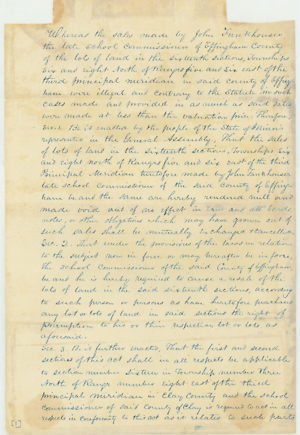 Whereas the sales made by John Funkhouser
the late school Commissioner of Effingham County
of the lots of land in the sixteenth sections, Townships
six and eight North of Ranges five and six east of the
third principal meridian in said county of Effing
ham were illegal and contrary to the Statute in such
cases made and provided in as much as said sales
were made at less than the valuation price. Therefore
Sec 1. Be it enacted by the people of the State of Illinois
represented in the General Assembly, That the sales
of lots of land in the sixteenth sections, Townships six
and eight north of Ranges five and six east of the third
Principal Meridian heretofore made by John Funkhouser
late school commissioner of the said County of Effing
ham be and the same are hereby rendered null and
made void and of no effect in law and all bonds
notes or other obligations which may have grown out of
such sales shall be mutually exchanged & cancelled
Sec. 2. That under the provisions of the laws in relation
to the subject now in force or may hereafter be in force,
the school Commissioner of the said County of Effingham
be and he is hereby required to cause a resale of the
lots of land in the said sixteenth sections, according
to such person or persons as have heretofore purchased
any lot or lots of land in said sections the right of
preemption to his or their respective lot or lots as
aforesaid.
Sec 3 Be it further enacted, That the first and second
sections of this act shall in all respects be applicable
to section number Sixteen in Township number three
North of Range number eight east of the third
principal meridian in Clay County and the school
commissioner of said County of Clay is required to act in all
respects in conformity to this act as it relates to such parts